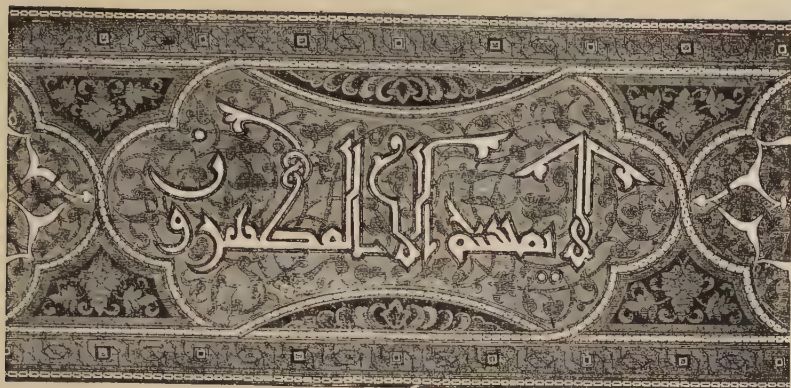 لا يمسه الا المطهرون